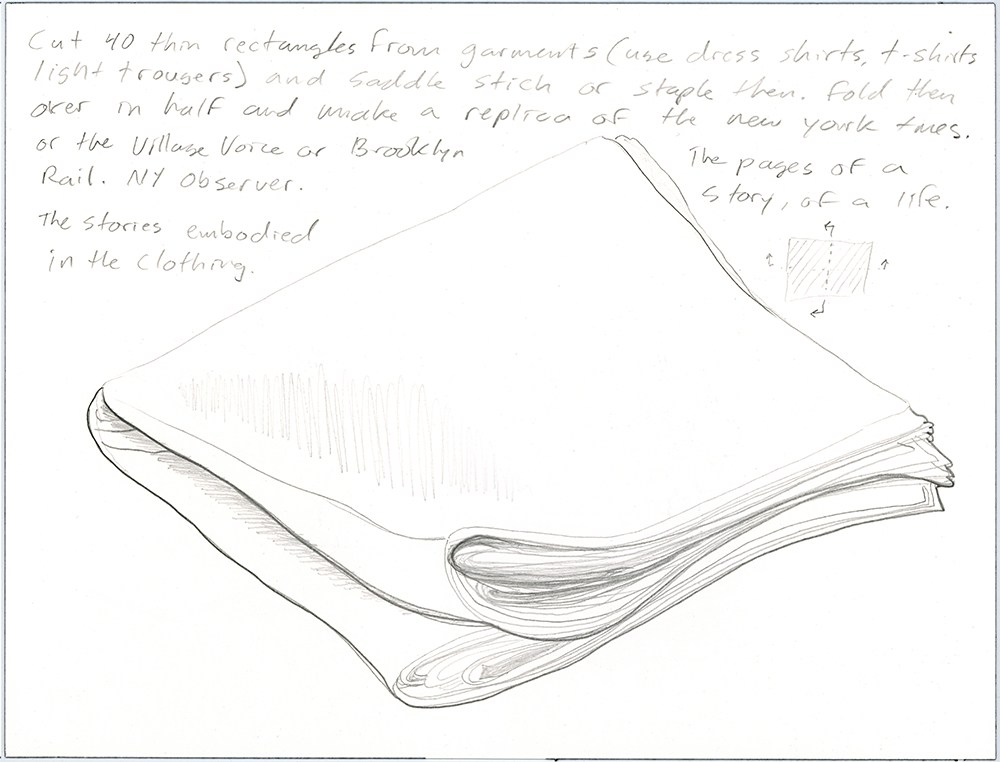 Cut 40 thin rectangles from garments (use dress shirts, t-shirts
light trousers) and saddle stich or staple then. Fold then
over in half and make a replica of the new york times.
or the Village Voice or Brooklyn
Rail. NY Observer.
The stories embodied
in the clothing.
The pages of a
story, of a life.